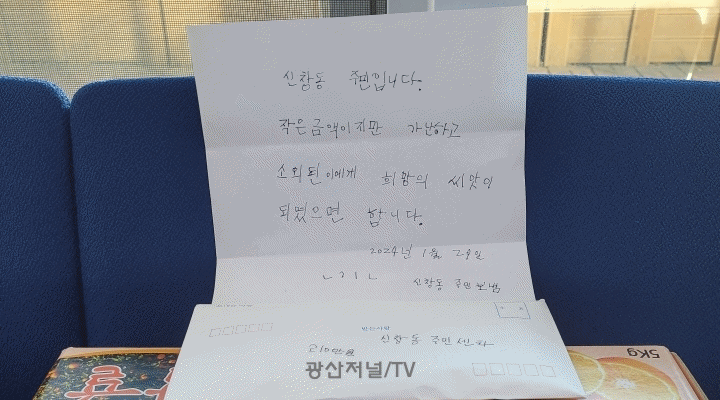 신창동 주민입니다.
작은금액이지만 가난하고
소외된이에게 희망의 씨앗이
되였으면 합니다.
2024년 1월 29일
신창동 주민보냄
신창동 주민센타
광산저널/TV
5Kg